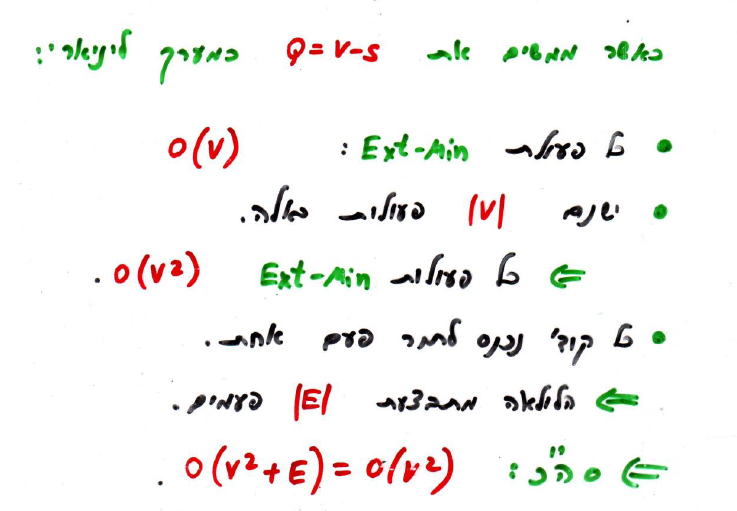 כאשר ממשים את Q = V-S כמערך ליניארי:
• כל פעולת Ext-Min : O(V)
• ישנם |V| פעולות כאלה.
⇐ כל פעולות Ext-Min O(V²) .
• כל קודי נכנס לתור פעם אחת.
⇐ הלולאה מתבצעת |E| פעמים.
⇐ סה"כ: O(V²+E) = O(V²) .